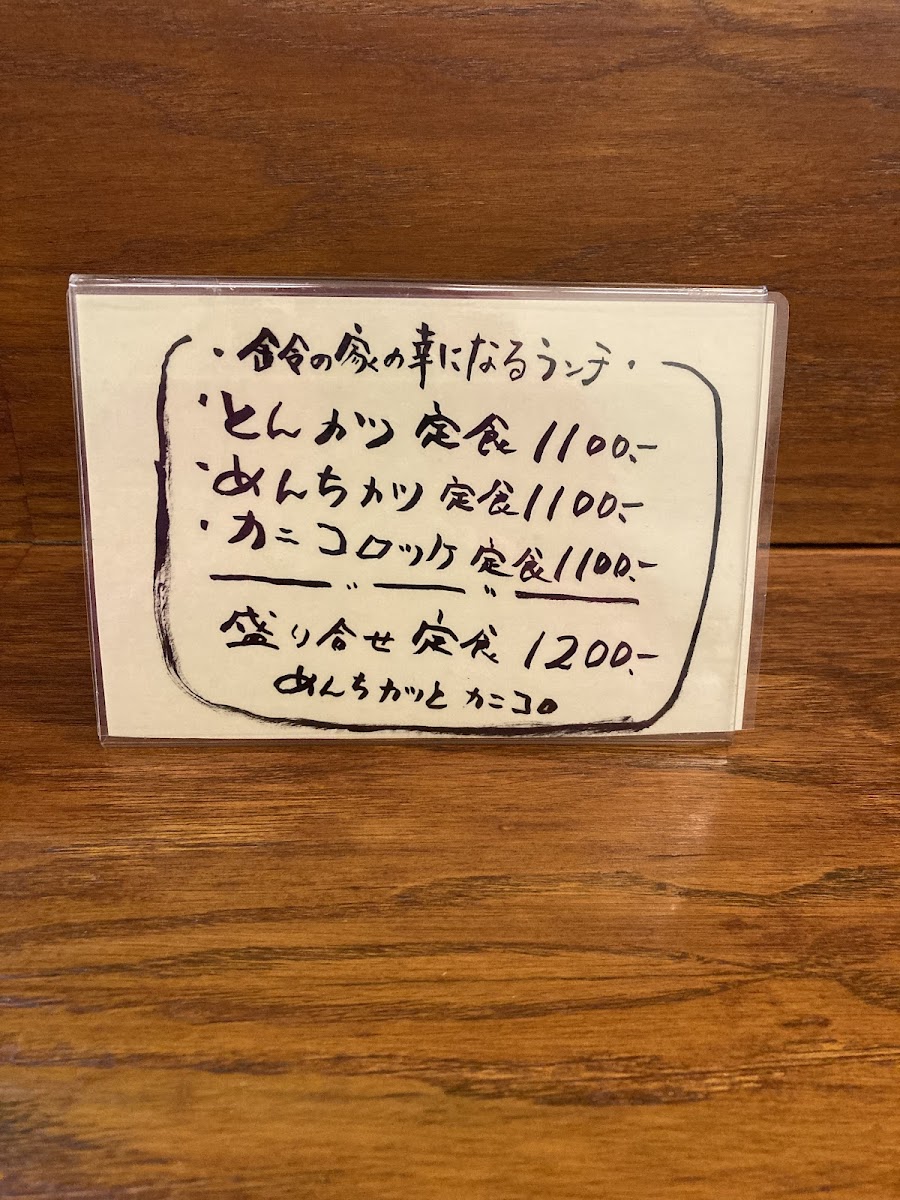 ・鈴の家の幸になるランチ・
・とんカツ定食1100.-
・めんちカツ定食1100.-
・カニコロッケ定食1100.-
盛り合せ定食1200.-
めんちカツとカニコロ